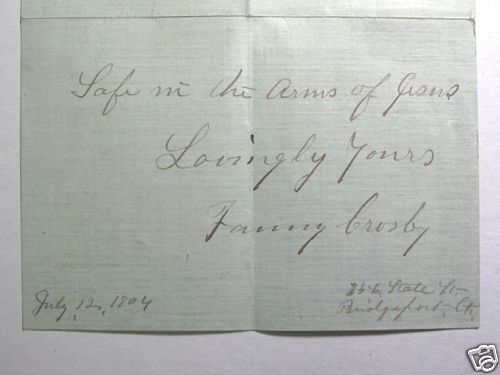 Safe in the Arms of Jesus
Lovingly Yours
Fanny Crosby
July 12, 1904
756 State St
Bridgeport, Ct.
ebY